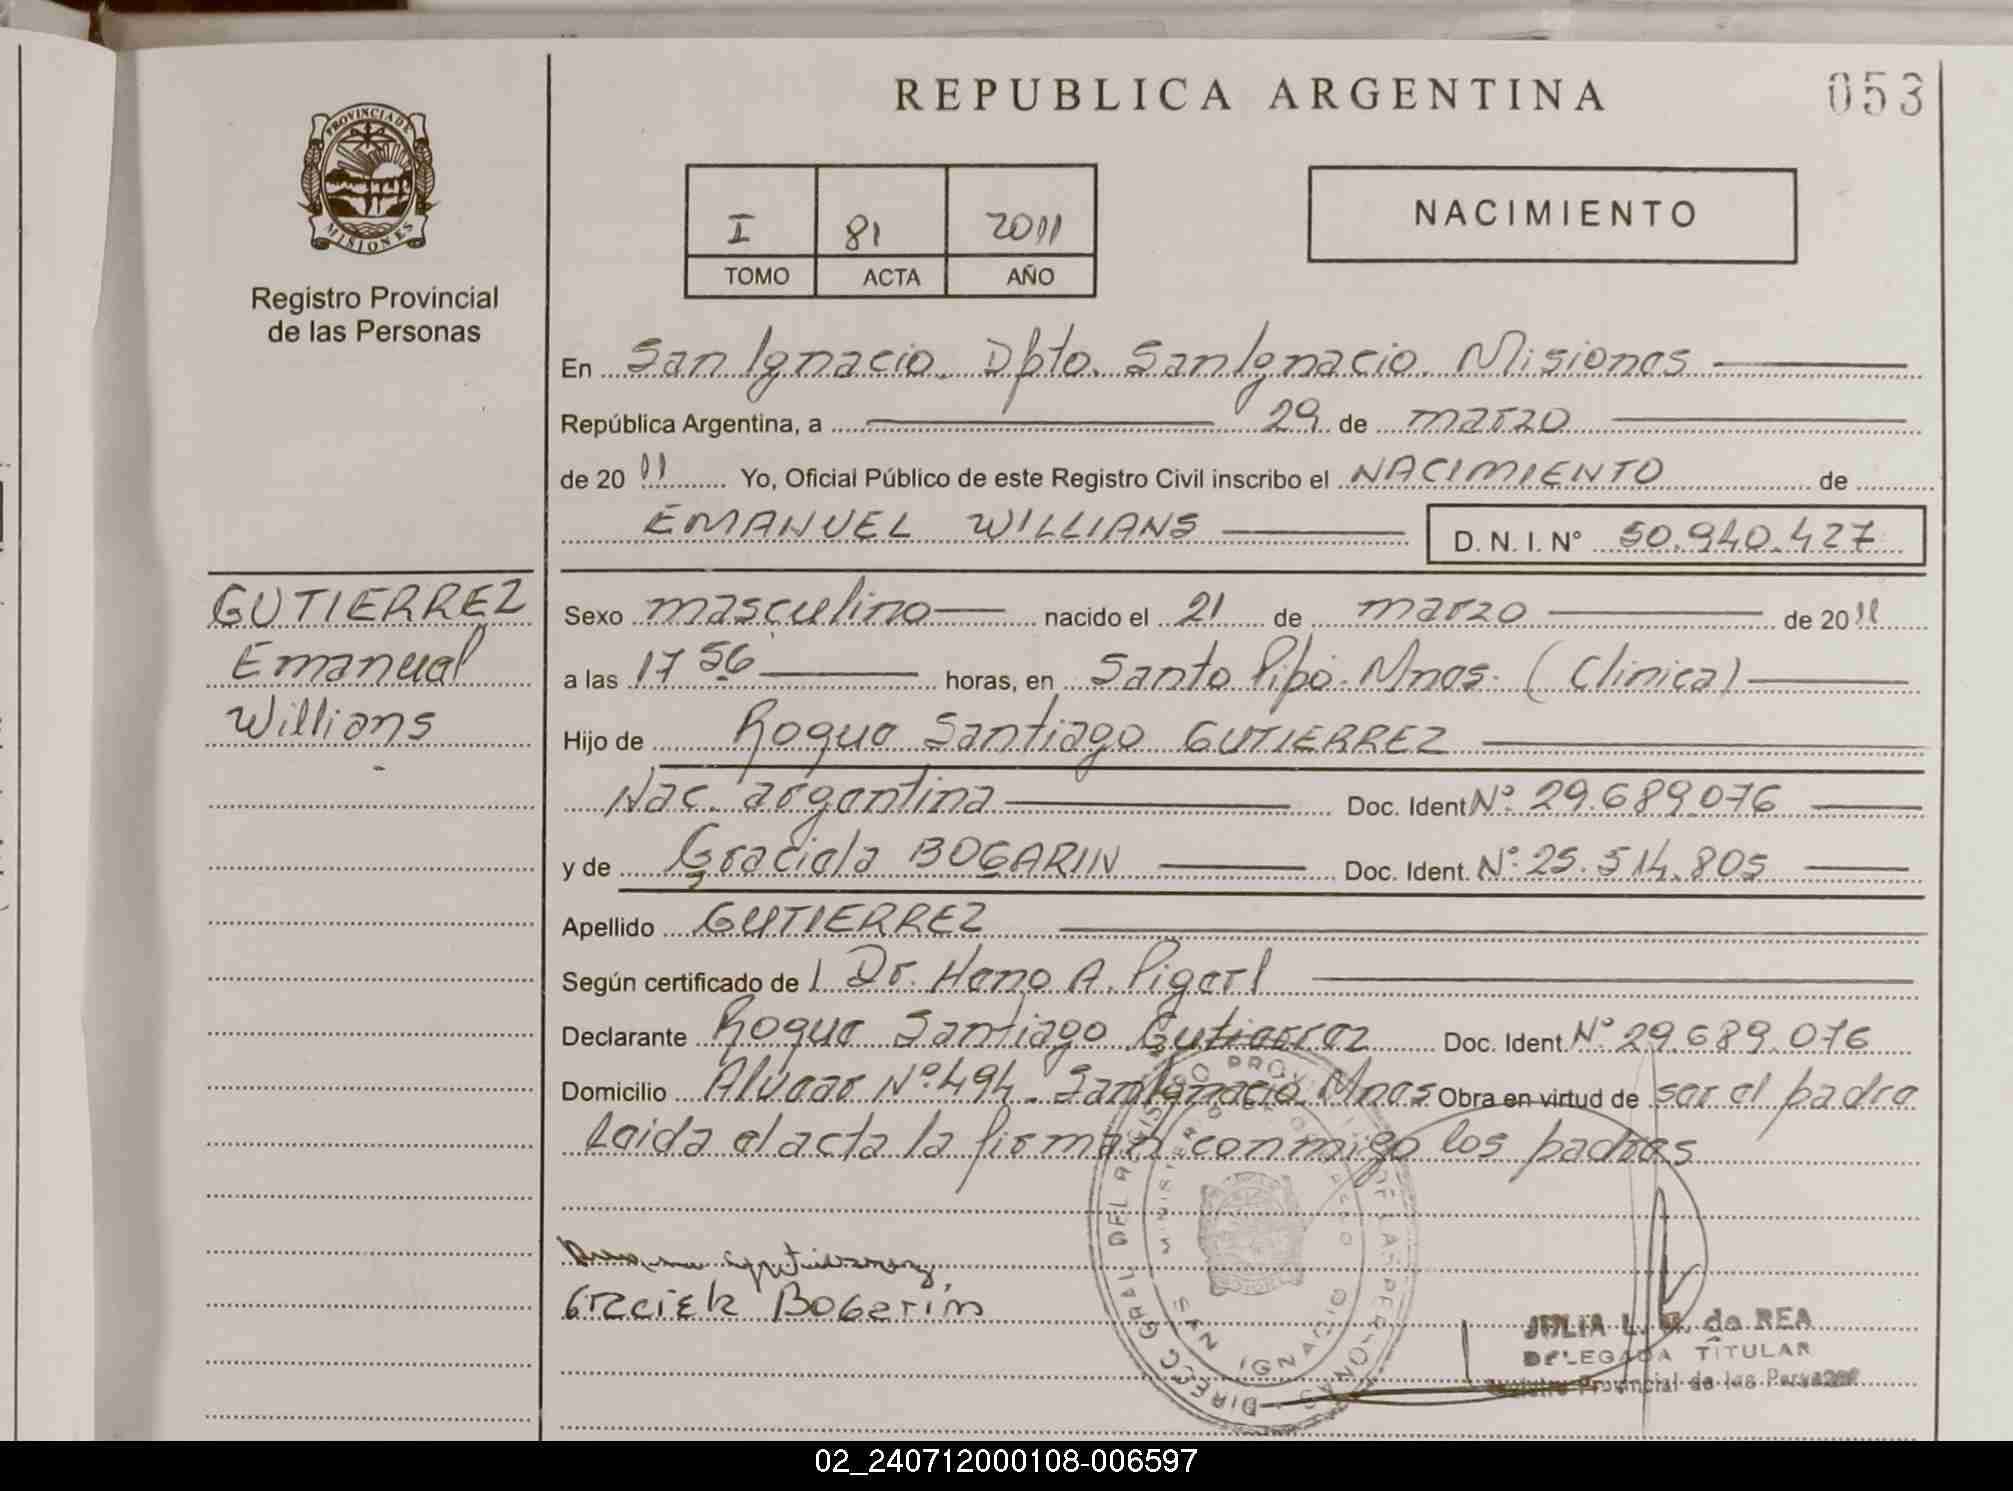 REPUBLICA ARGENTINA
053
PROVINCIA DE
MISIONES
Registro Provincial
de las Personas
I 81 2011
TOMO ACTA AÑO
NACIMIENTO
En San Ignacio. Dpto. San Ignacio. Misiones
República Argentina, a 29 de marzo
de 2011 Yo, Oficial Público de este Registro Civil inscribo el NACIMIENTO de
EMANUEL WILLIANS D. N. I. N° 50.940.427
GUTIERREZ
Emanuel
Willians
Sexo masculino nacido el 21 de marzo de 2011
a las 17 56 horas, en Santo Pipó. Mnes. (Clinica)
Hijo de Roque Santiago GUTIERREZ
Nac. argentina Doc. Ident N° 29.689.076
y de Graciela BOGARIN Doc. Ident. N° 25.514.805
Apellido GUTIERREZ
Según certificado de Dr. A.
Declarante Roque Santiago Gutierrez Doc. Ident. N° 29.689.076
Domicilio Alvear N° 494. San Ignacio. Mnes Obra en virtud de ser el padre
Leida el acta la firman conmigo los padres
gutierrez
Bogarin
DIREC. GRAL. DEL REGISTRO PROVINCIAL DE LAS PERSONAS
SAN IGNACIO
JULIA L. de REA
DELEGADA TITULAR
Registro Provincial de las Personas
02_240712000108-006597